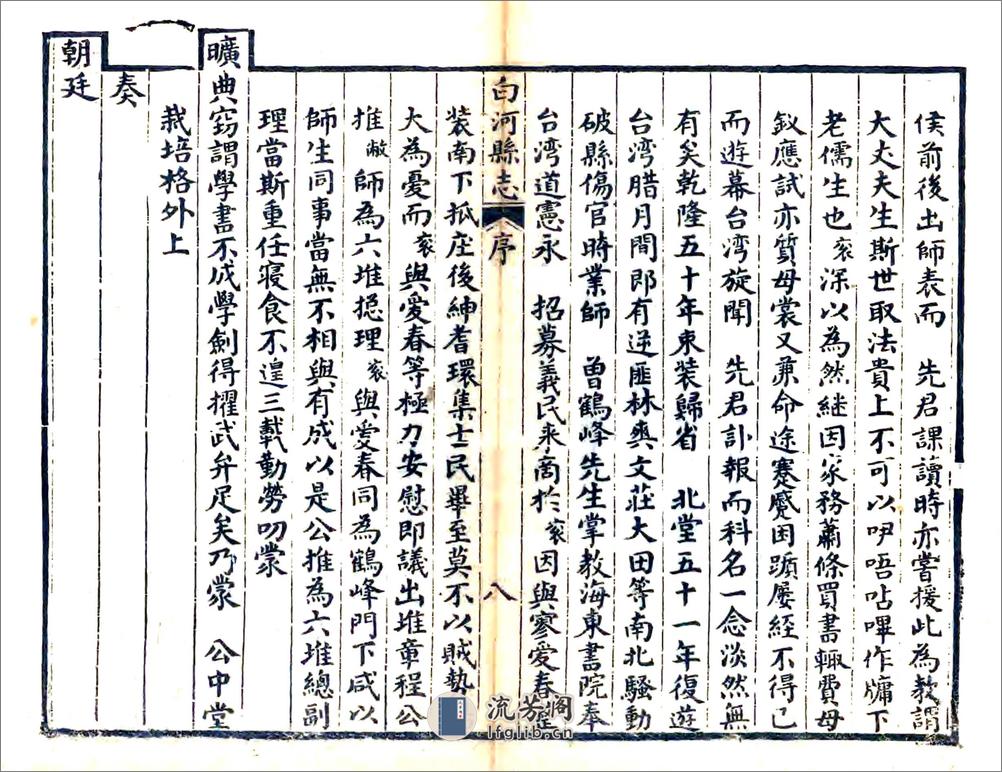 侯前後出師表而　先君課讀時亦嘗援此為教謂
大丈夫生斯世取法貴上不可以咿唔呫嗶作牖下
老儒生也衮深以為然継因家務蕭條買書輙費母
釵應試亦質母裳又兼命途蹇蹙困躓屡經不得已
而遊幕台湾旋聞　先君訃報而科名一念淡然無
有矣乾隆五十年束装歸省　北堂五十一年復遊
台湾腊月間即有逆匪林爽文莊大田等南北騷動
破縣傷官時業師　曽鶴峰先生掌教海東書院奉
台湾道憲永　招募義民来商於衮因與寥愛春星
白河縣志　序　八
装南下抵庄後紳耆環集士民畢至莫不以賊勢
大為憂而衮與爱春等極力安慰即議出堆章程公
推敝師為六堆揔理衮與爱春同為鶴峰門下咸以
師生同事當無不相與有成以是公推為六堆總副
理當斯重任寝食不遑三載勤勞叨蒙
曠典窃謂學書不成學劍得擢武弁足矣乃蒙　公中堂
栽培格外上
奏
朝廷
流芳阁
lfglib.cn